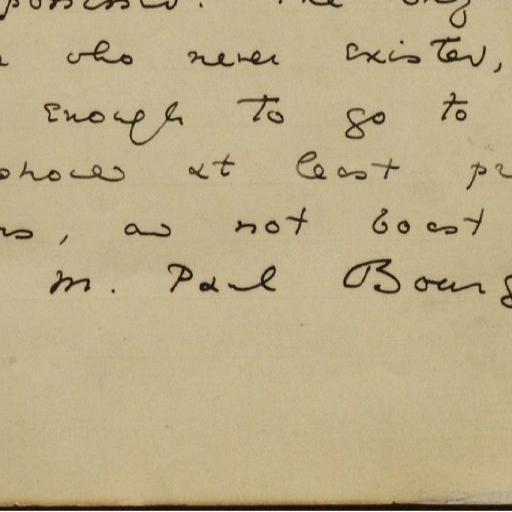 possessed. The only
who never existed,
enough to go to
should at least pr
rs, and not boast
M. Paul Bourg